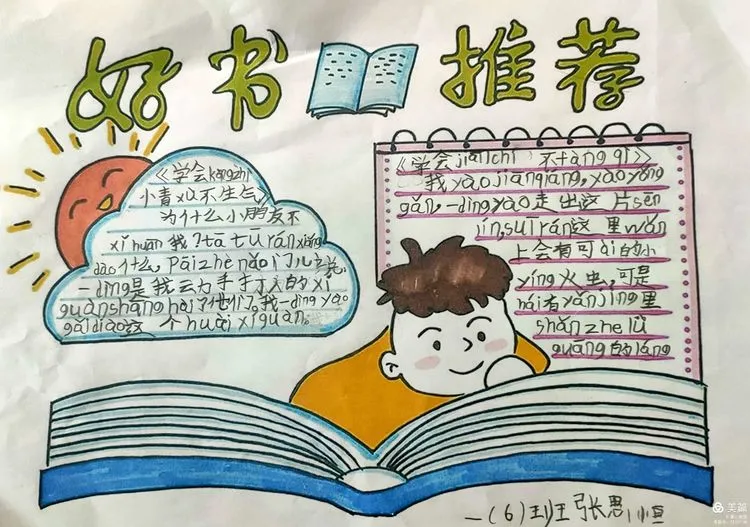 好书推荐
《学会kòngzhì
小青xù不生气》
为什么小朋友不
xǐ huan 我？tā tū rán xiǎng
dào 什么，pāi zhe nǎo 门儿说，
一dìng是 我 动手打人的 xí
guàn shāng hài 了他们。我一dìng yào
gǎi diào 这 个 huài xí guàn。
《学会 jiān chí 不 fàng qì》
我 yào jiān qiáng, yào yǒng
gǎn, 一dìng yào 走 出 这 片 sēn
lín, suī rán 这 里 wǎn
上 会 有 可 ài 的 小
yíng 火 虫, 可是
hái 有 yǎn jīng 里
shǎn zhe lǜ
guāng 的 láng
一(6)班 张思
美篇